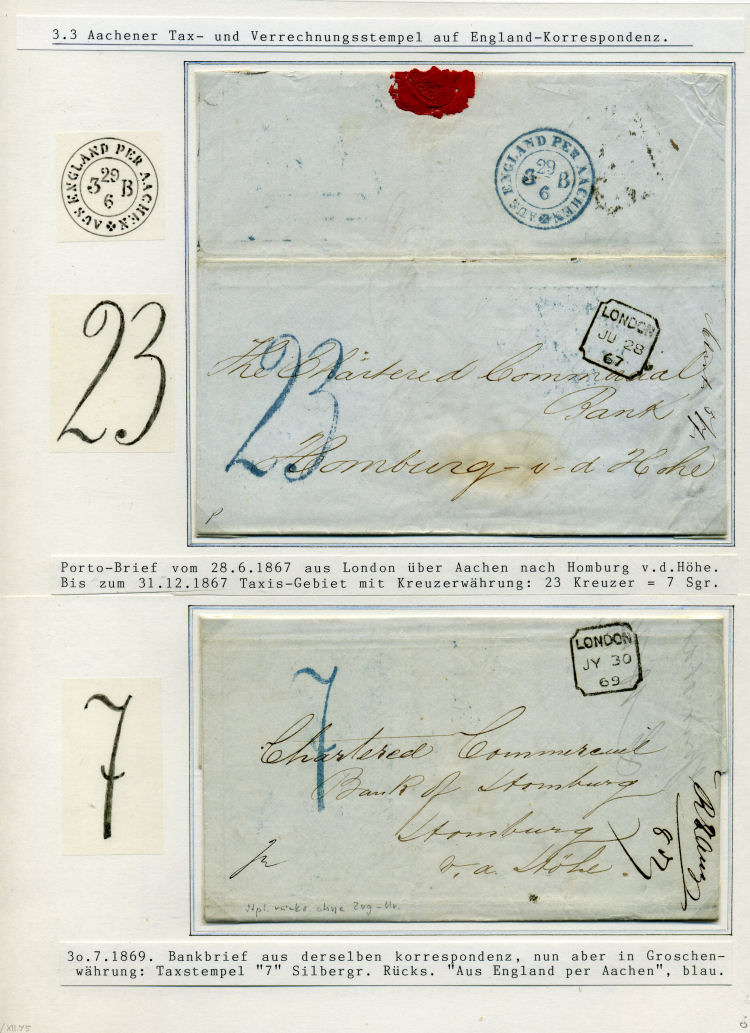 3.3 Aachener Tax- und Verrechnungsstempel auf England-Korrespondenz.
AUS ENGLAND PER AACHEN
29
3 B
6
AUS ENGLAND PER AACHEN
29
3 B
6
23
LONDON
JU 28
67
The Chartered Commercial
Bank
23
Homburg-v-d Hohe
Porto-Brief vom 28.6.1867 aus London über Aachen nach Homburg v.d.Höhe.
Bis zum 31.12.1867 Taxis-Gebiet mit Kreuzerwährung: 23 Kreuzer = 7 Sgr.
LONDON
JY 30
69
7
7
Chartered Commercial
Bank of Homburg
Homburg
v. d. Höhe.
3o.7.1869. Bankbrief aus derselben korrespondenz, nun aber in Groschen-
währung: Taxstempel "7" Silbergr. Rücks. "Aus England per Aachen", blau.
/XII.75